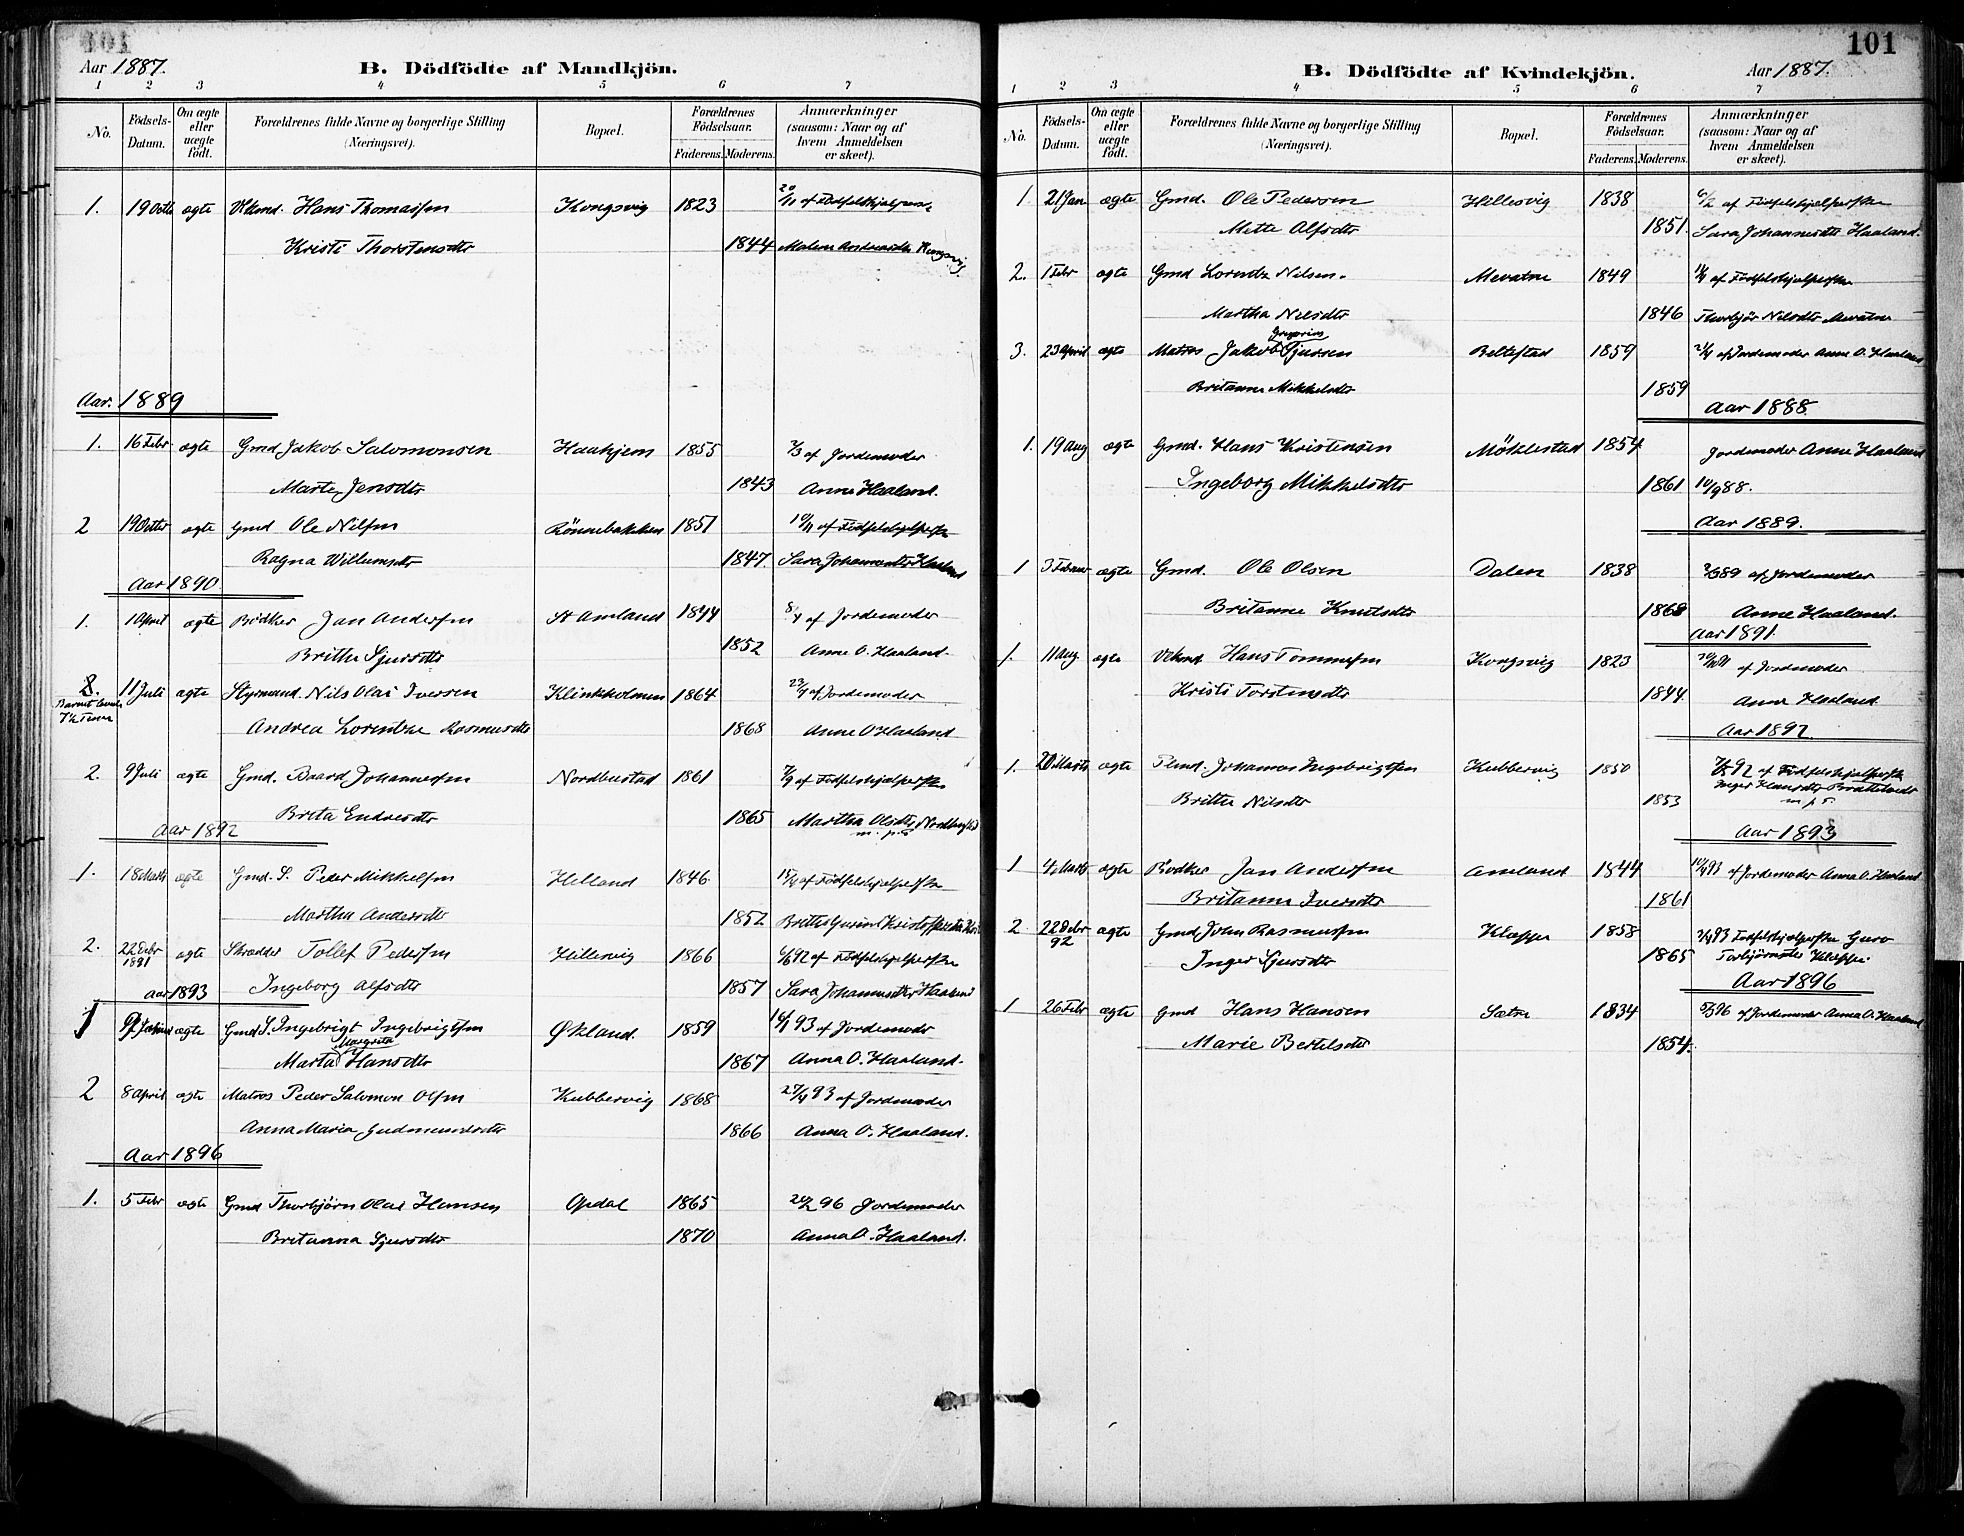 101
Aar 1887.
B. Dödfödte af Mandkjön.
1 2 3 4 5 6 7
No. Födsels-Datum. Om ægte eller uægte födt. Forældrenes fulde Navne og borgerlige Stilling (Næringsvei). Bopæl. Forældrenes Födselsaar. Faderens. Moderens. Anmærkninger (saasom: Naar og af hvem Anmeldelsen er skeet).
1. 19 Octb ægte Hans Thomassen Kongsvig 1823 20/11 af Födselshjælperske
Kristi Thorstensdtr 1844 Malene Kongsvig
Aar. 1889
1. 16 Febr ægte Gmd Jakob Salomonsen Haakjem 1855 7/3 af Jordemoder
Marte Jensdtr 1843 Anne Haaland.
2 19 Octbr ægte Gmd Ole Nilsen Rönnebakken 1851 10/11 af Födselshjelperske
Ragna Willumsdtr 1847. Sara Johannesdtr Haaland
Aar 1890
1. 1 April ægte Bödker Jan Andersen St Amland 1844 8/4 af Jordemoder
Britha Sjursdtr 1852 Anne O. Haaland.
2. 11 Juli ægte Styrmand Nils Olai Iversen Klinkholmen 1864 23/7 af Jordemoder
Barnet levede 7½ Timer
Andrea Lorentze Rasmusdtr 1868 Anne O Haaland
2. 9 Juli ægte Gmd. Baard Johannessen Nordbustad 1861 7/9 af Födselshjælperske
Brita Endresdtr 1865 Martha Olsdtr Nordbustad
m. p. P.
Aar 1892
1. 18 Marts ægte Gmd. S. Peder Mikkelsen Helland 1846 15/4 af Födselshjælperske
Martha Andersdtr 1852 Brithe Gurine Kristoffersdtr
2. 22 Debr 1891 ægte Skrædder Tollef Pedersen Hillesvig 1866 af Födselshjælperske
Ingeborg Alfsdtr 1857 Sara Johannesdtr Haaland
Aar 1893
1 ægte Gmd. S. Ingebrigt Ingebrigtsen Økland. 1859 93 af Jordemoder
Marta Margrita Hansdtr 1867 Anna O. Haaland.
2 8 April ægte Matros Peder Salomon Olsen Kubbervig 1868 27/4 93 af Jordemoder
Anna Maria Gudmundsdtr 1866 Anna O. Haaland.
Aar 1896
1. 5 Febr ægte Gmd Thorbjörn Olai Hansen Opdal 1865 96 Jordemoder
Britanna Sjursdtr 1870 Anna O. Haaland.
101
B. Dödfödte af Kvindekjön.
Aar 1887.
1 2 3 4 5 6 7
No. Födsels-Datum. Om ægte eller uægte födt. Forældrenes fulde Navne og borgerlige Stilling (Næringsvei). Bopæl. Forældrenes Födselsaar. Faderens. Moderens. Anmærkninger (saasom: Naar og af hvem Anmeldelsen er skeet).
1 21 Jan ægte Gmd. Ole Pedersen Hillesvig 1838 6/2 af Födselshjelperske
Mette Alfsdtr 1851. Sara Johannesdtr Haaland.
2. 1 Febr ægte Gmd Lorentz Nilsen. Mevatne 1849 af Födselshjælperske
Martha Nilsdtr 1846 Thorbjör Nilsdtr Mevatne
3. 23 April ægte Matros Jakob Gregorius Tjursen Beltestad 1859 af Jordemoder Anne O. Haaland
Britanna Mikkelsdtr 1859
Aar 1888
1. 19 Aug ægte Gmd. Hans Kristensen Möklestad 1854 Jordemoder Anne Haaland
Ingeborg Mikkelsdtr 1861 10/9 88.
Aar 1889.
1 3 Februar ægte Gmd. Ole Olsen Dalen 1838 89 af Jordemoder
Britanne Knutsdtr Anne Haaland.
Aar 1891.
1. 11 Aug ægte Hans Tommesen Kongsvig 1823 af Jordemoder
Kristi Torstensdtr 1844 Anne Haaland.
Aar 1892
1. 20 Marts ægte Johannes Ingebrigtsen Kubbervig 1850 92 af Födselshjelperske
Britha Nilsdtr 1853 Inger Hansdtr
m. p. P.
Aar 1893
1 4 Marts ægte Bödker Jan Andersen Amland 1844 93 af Jordemoder Anna O. Haaland
Britanna Iversdtr 1861
2 22 Debr 92 ægte Gmd. John Rasmussen Kleppe 1858 93 Födselshjelperske Guro
Inger Sjursdtr 1865 Torbjörnsdtr Kleppe.
Aar 1896
1 26 Febr ægte Gmd Hans Hansen Sætre 1834 96 af Jordemoder Anna O. Haaland
Marie Bertelsdtr 1854.